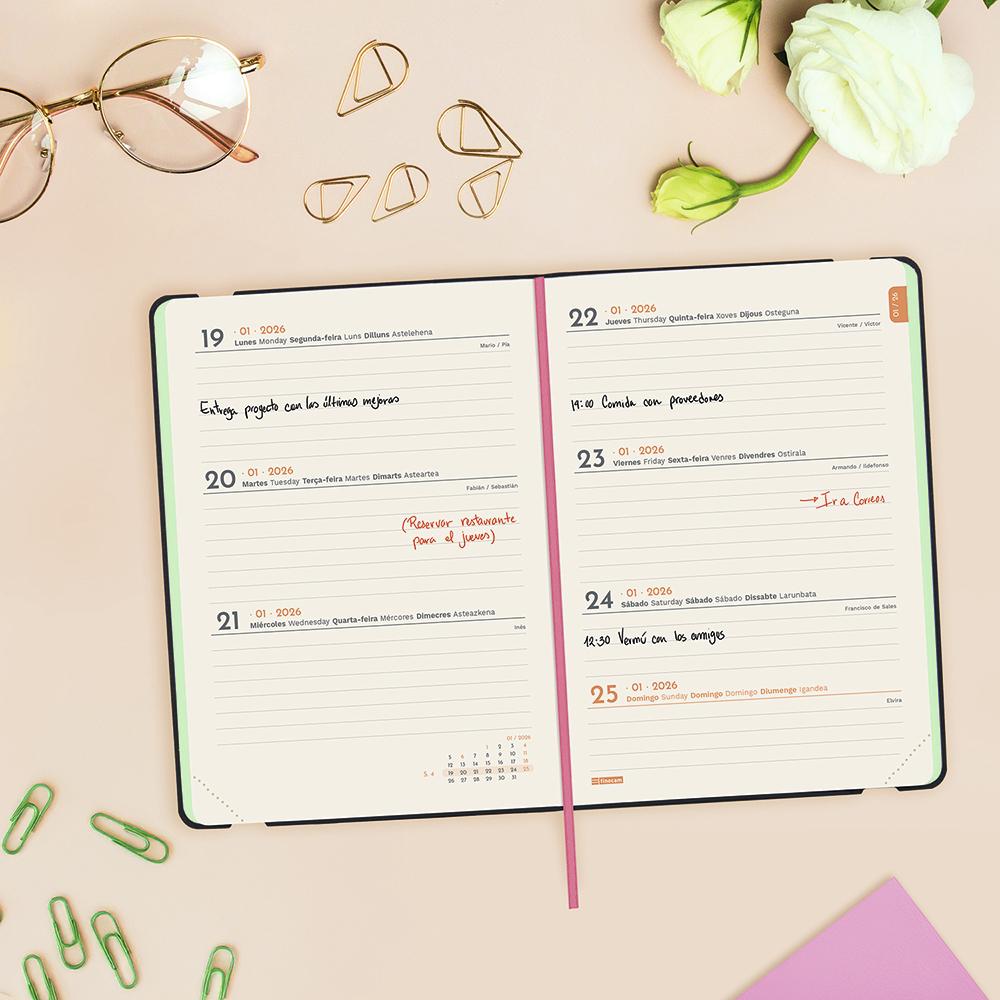 19 · 01 · 2026
Lunes Monday Segunda-feira Luns Dilluns Astelehena
Mario / Pía
Entrega proyecto con las últimas mejoras
20 · 01 · 2026
Martes Tuesday Terça-feira Martes Dimarts Asteartea
Fabián / Sebastián
(Reservar restaurante
para el jueves)
21 · 01 · 2026
Miércoles Wednesday Quarta-feira Mércores Dimecres Asteazkena
Inés
01 / 2026
1 2 3 4
5 6 7 8 9 10 11
12 13 14 15 16 17 18
S. 4 19 20 21 22 23 24 25
26 27 28 29 30 31
01 / 26
22 · 01 · 2026
Jueves Thursday Quinta-feira Xoves Dijous Osteguna
Vicente / Víctor
14:00 Comida con proveedores
23 · 01 · 2026
Viernes Friday Sexta-feira Venres Divendres Ostirala
Armando / Ildefonso
→ Ir a Correos
24 · 01 · 2026
Sábado Saturday Sábado Sábado Dissabte Larunbata
Francisco de Sales
12:30 Vermú con los amigos
25 · 01 · 2026
Domingo Sunday Domingo Domingo Diumenge Igandea
Elvira
finocam